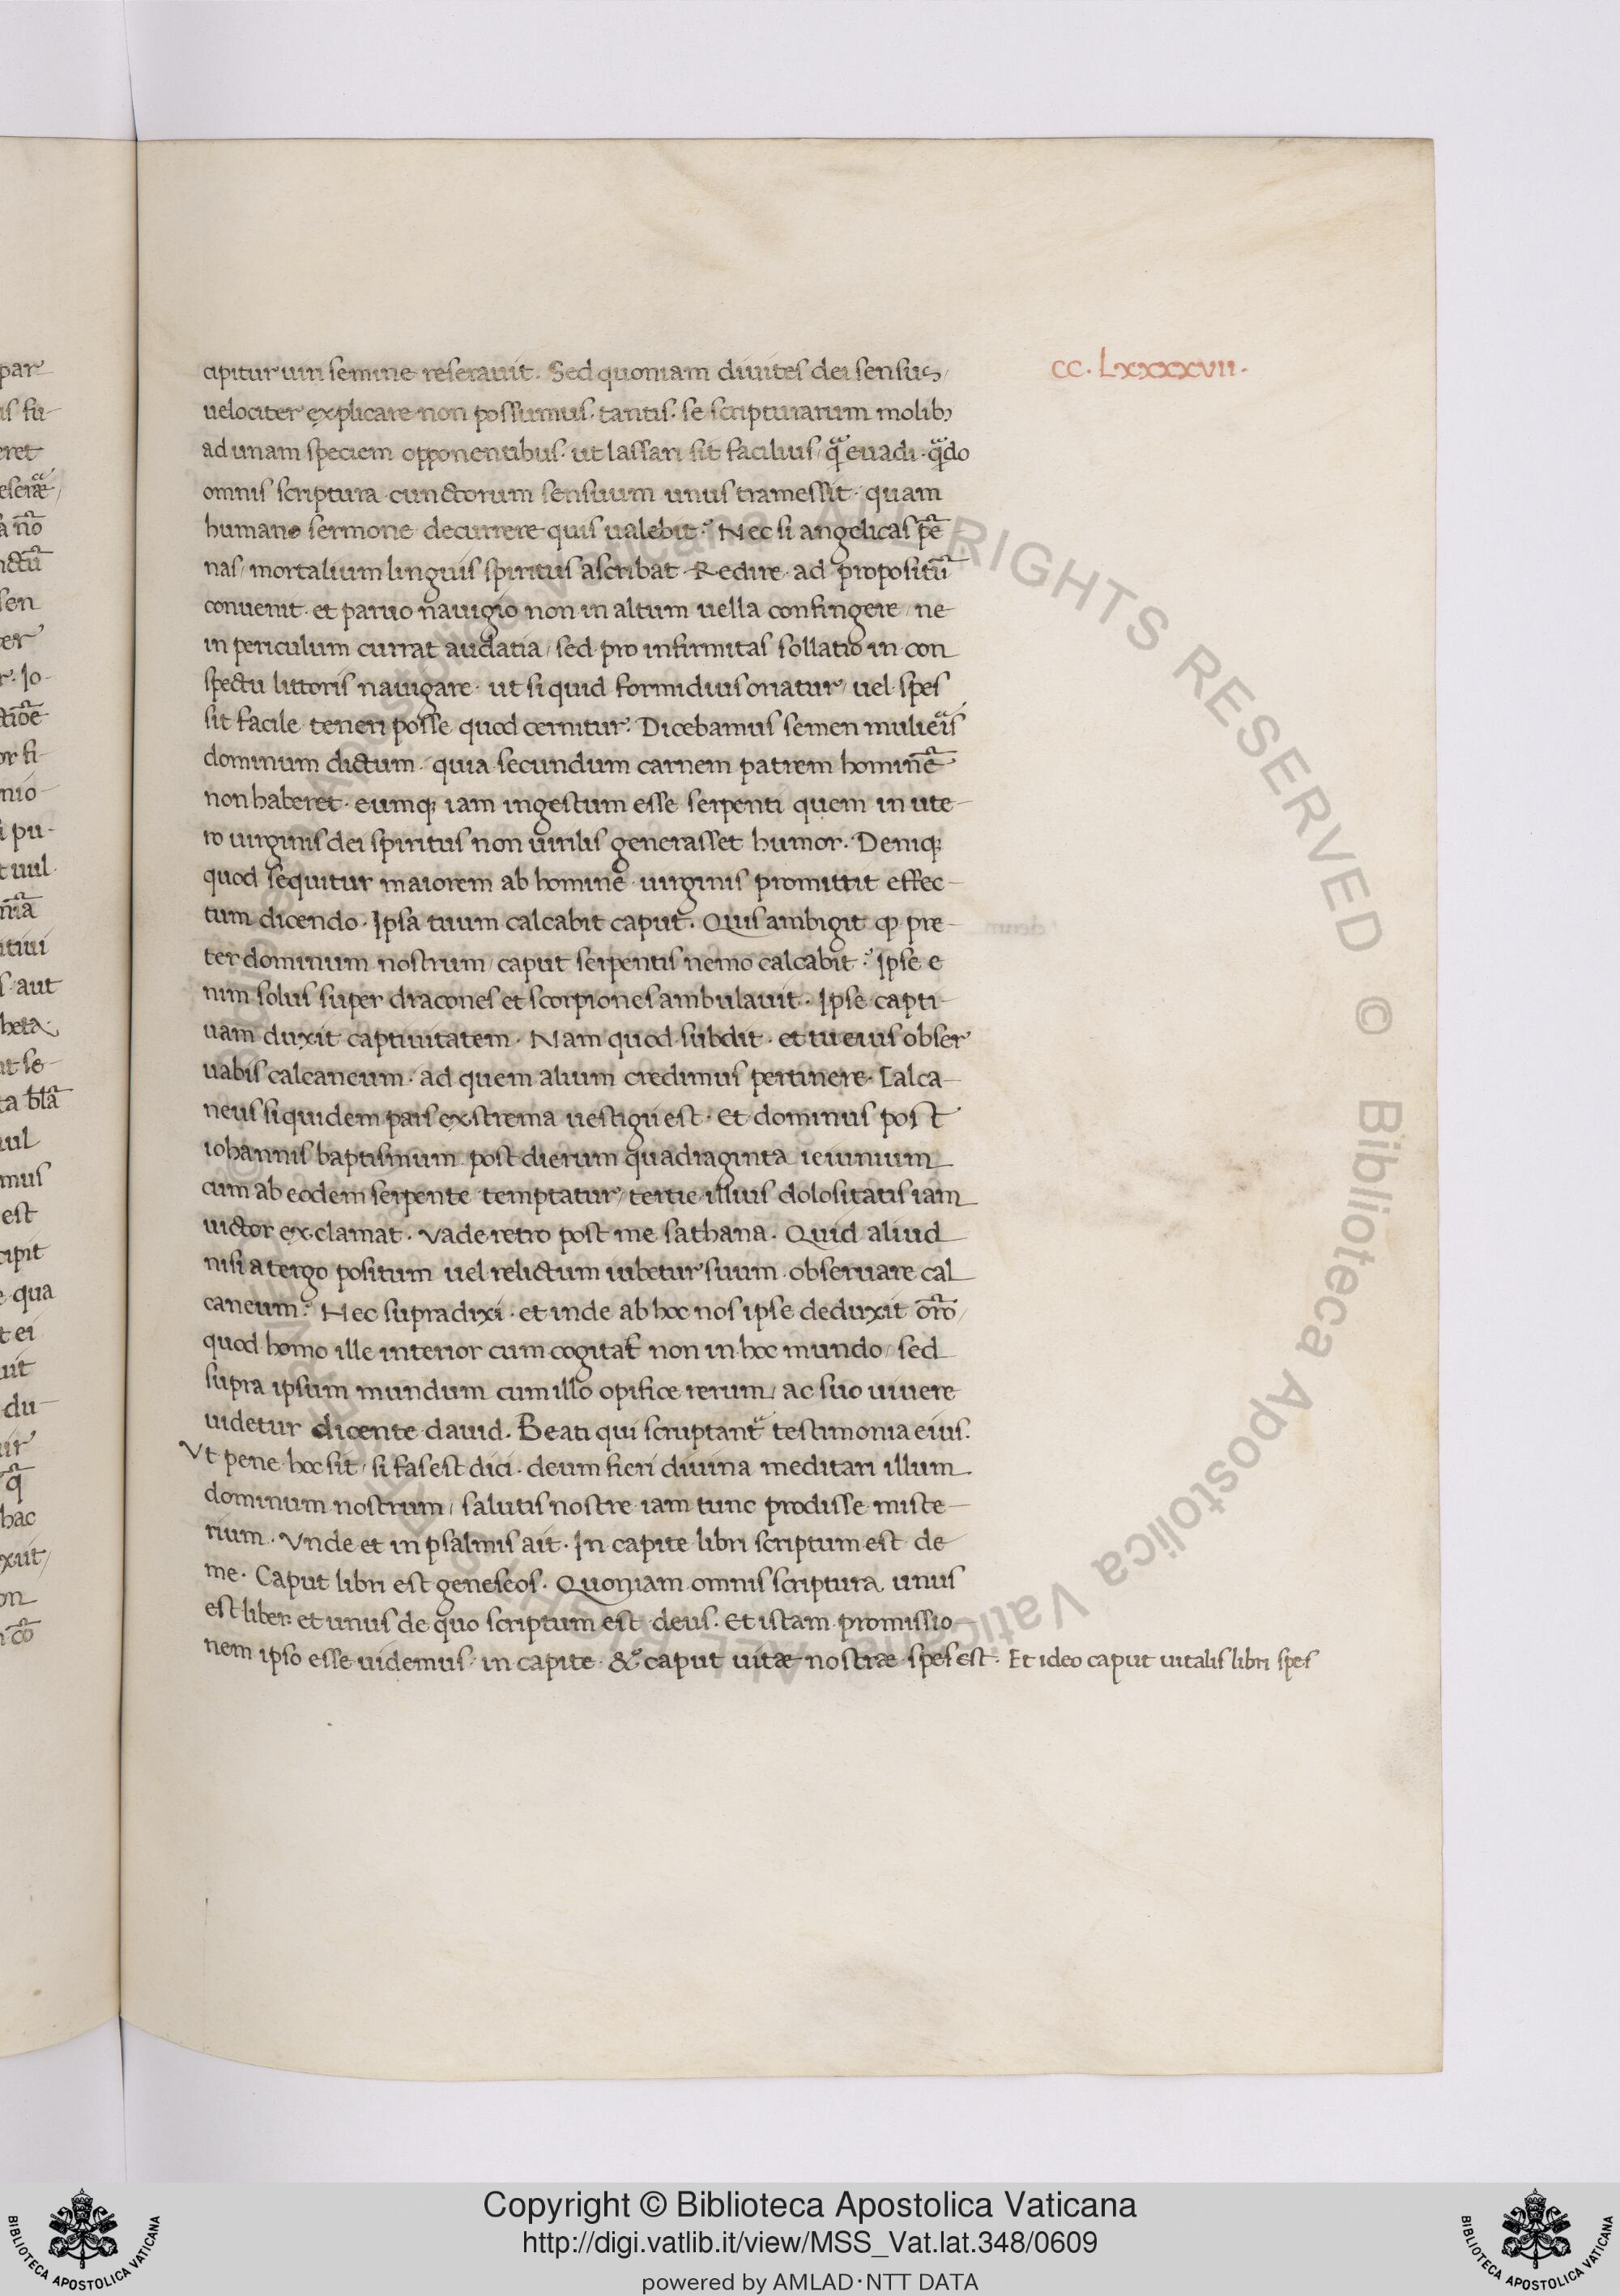 cipitur uiri semine reserauit. Sed quoniam diuites dei sensus/
CC. LXXXXVII.
uelociter explicare non possumus. tantis. se scripturarum molibꝫ
ad unam speciem opponentibus. ut lassari sit facilius/ q̃ euadi. q̃do
omnis scriptura cunctorum sensuum unus tramessit. quam
humano sermone decurrere quis ualebit? Nec si angelicas pẽ
nas/ mortalium linguis spiritus ascribat. Redire ad propositũ
conuenit. et paruo nauigio non in altum uella confingere/ ne
in periculum currat audatia/ sed pro infirmitas sollatio in con
spectu littoris nauigare. ut si quid formidiuis oriatur/ uel spes
sit facile teneri posse quod cernitur. Dicebamus semen mulieris
dominum dictum. quia secundum carnem patrem hominẽ
non haberet. eumq; iam ingestum esse serpenti quem in ute-
ro uirginis dei spiritus non uirilis generasset humor. Deniq;
quod sequitur maiorem ab homine uirginis promittit effec-
tum dicendo. Ipsa tuum calcabit caput. Quis ambigit ꝙ pre-
ter dominum nostrum/ caput serpentis nemo calcabit? Ipse e
nim solus super dracones et scorpiones ambulauit. Ipse capti-
uam duxit captiuitatem. Nam quod subdit. et tu eius obser
uabis calcaneum. ad quem alium credimus pertinere. Calca-
neus siquidem pars exstrema uestigii est. Et dominus post
iohannis baptismum. post dierum quadraginta ieiunium
cum ab eodem serpente temptatur/ tertie illius dolositatis iam
uictor exclamat. Vade retro post me sathana. Quid aliud
nisi a tergo positum uel relictum iubetur suum obseruare cal
caneum? Nec supra dixi. et inde ab hoc nos ipse deduxit orõ/
quod homo ille interior cum cogitat non in hoc mundo/ sed
supra ipsum mundum cum illo opifice rerum/ ac suo uiuere
uidetur dicente dauid. Beati qui scruptant᷑ testimonia eius.
Vt pene hoc sit/ si fas est dici. deum fieri diuina meditari illum
dominum nostrum/ salutis nostre iam tunc prodisse miste-
rium. Vnde et in psalmis ait. In capite libri scriptum est de
me. Caput libri est geneseos. Quoniam omnis scriptura unus
est liber. et unus de quo scriptum est deus. Et istam promissio-
nem ipso esse uidemus. in capite. & caput uitæ nostræ spes est. Et ideo caput uitalis libri spes
Copyright © Biblioteca Apostolica Vaticana
http://digi.vatlib.it/view/MSS_Vat.lat.348/0609
powered by AMLAD·NTT DATA